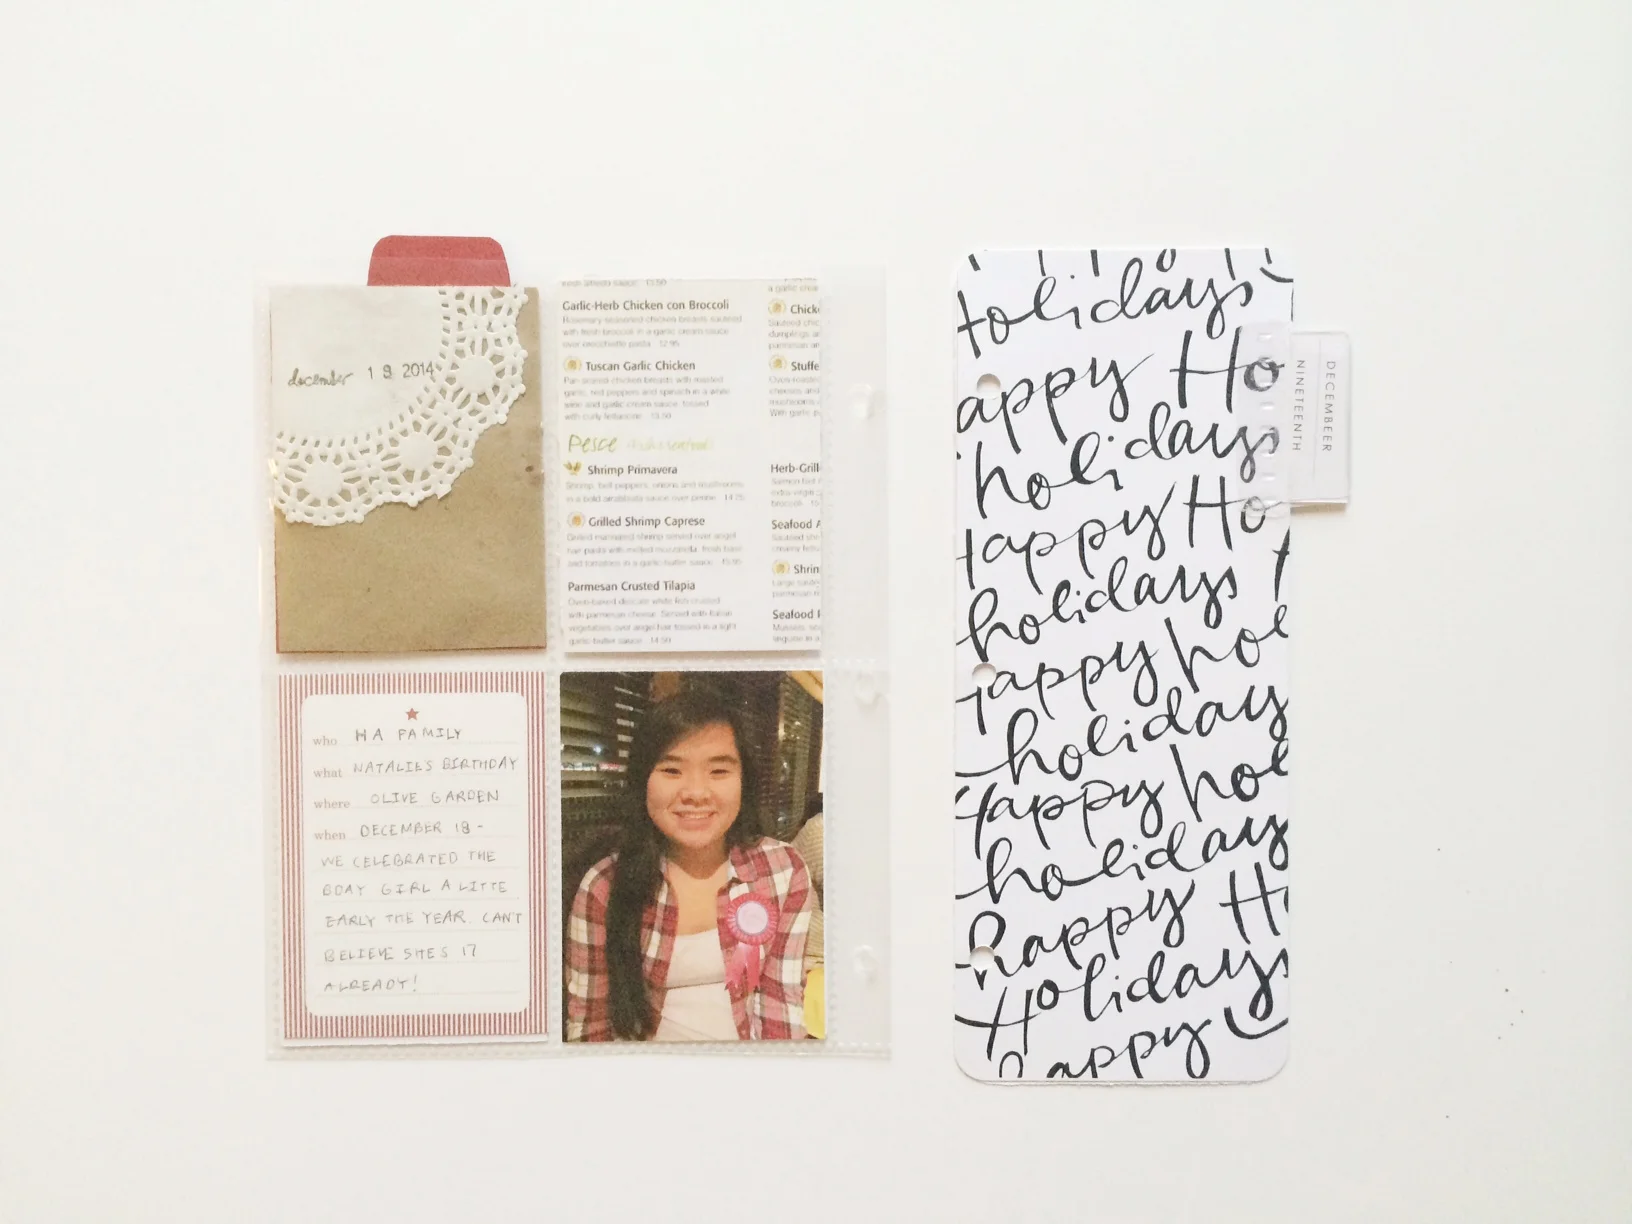 december 18 2014
Garlic-Herb Chicken con Broccoli
Rosemary seasoned chicken breasts sauteed
with fresh broccoli in a garlic cream sauce
over orecchiette pasta 12.95
Tuscan Garlic Chicken
Pan-seared chicken breasts with roasted
garlic, red peppers and spinach in a white
wine and garlic cream sauce, tossed
with curly fettuccine 13.50
Pesce
Shrimp Primavera
Shrimp, bell peppers, onions and mushrooms
in a bold arrabbiata sauce over penne
Grilled Shrimp Caprese
Grilled marinated shrimp served over angel
hair pasta with melted mozzarella, fresh basil
and tomatoes in a garlic-butter sauce 15.95
Parmesan Crusted Tilapia
Oven-baked delicate white fish crusted
with parmesan cheese. Served with Italian
vegetables over angel hair tossed in a light
garlic-butter sauce 14.50
Chick
Sauteed chic
dumplings an
parmesan an
Stuffe
Oven-roasted
cheeses and
mushrooms
With garlic
Herb-Grill
Salmon
Seafood A
Shrim
Seafood
who HA FAMILY
what NATALIE'S BIRTHDAY
where OLIVE GARDEN
when DECEMBER 18 -
WE CELEBRATED THE
BDAY GIRL A LITTE
EARLY THE YEAR. CAN'T
BELIEVE SHE'S 17
ALREADY!
Holidays
appy Ho
holidays
Happy Ho
holidays
happy hol
holiday
Happy hol
holiday
happy H
Holidays
happy
DECEMBEER
NINETEENTH